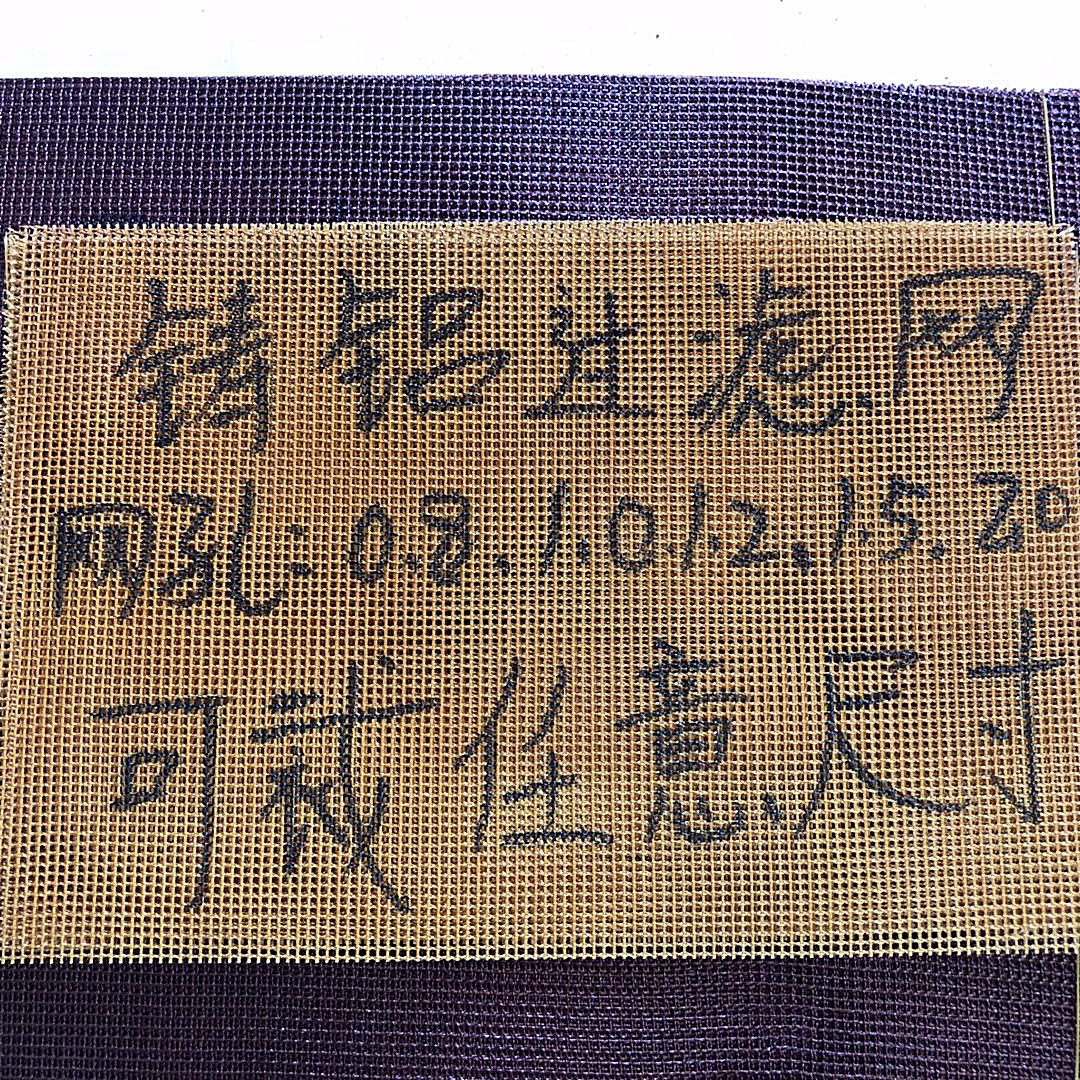 铸铝过滤网
网孔:0.8、1.0、1.2、1.5、2.0
可裁任意尺寸